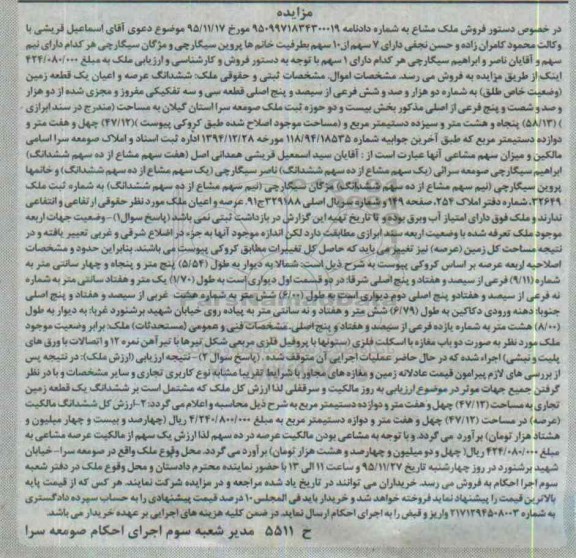 مزایده
در خصوص دستور فروش ملک مشاع به شماره دادنامه ۹۵۰۹۹۷۱۸۳۴۳۰۰۰۱۹ مورخ ۹۵/۱۱/۱۷ موضوع دعوی آقای اسماعیل قریشی با
وکالت محمود کامران زاده و حسن نجفی دارای ۷ سهم از ۱۰ سهم بطرفیت خانم ها پروین سیگارچی و مژگان سیگارچی هر کدام دارای نیم
سهم و آقایان ناصر و ابراهیم سیگارچی هر کدام دارای ۱ سهم با توجه به دستور فروش و کارشناسی و ارزیابی ملک به مبلغ ۴۲۴/۰۸۰/۰۰۰
اینک از طریق مزایده به فروش می رسد. مشخصات اموال، مشخصات ثبتی و حقوقی ملک: ششدانگ عرصه و اعیان یک قطعه زمین
(وضعیت خاص طلق) به شماره دو هزار و صد و شش فرعی از سیصد و پنج اصلی قطعه سی و سه تفکیکی مفروز و مجزی شده از دو هزار
و صد و شصت و پنج فرعی از اصلی مذکور بخش بیست و دو حوزه ثبت ملک صومعه سرا استان گیلان به مساحت (مندرج در سند ابرازی
(۵۸/۱۳) پنجاه و هشت متر و سیزده دستیمتر مربع و (مساحت موجود اصلاح شده طبق کروکی پیوست) (۴۷/۱۲) چهل و هفت متر و
دوازده دستیمتر مربع که طبق آخرین جوابیه شماره ۱۱۸/۹۴/۱۸۵۳۵ مورخه ۱۳۹۴/۱۲/۲۸ اداره ثبت اسناد و املاک صومعه سرا اسامی
مالکین و میزان سهم مشاعی آنها عبارت است از: آقایان سید اسمعیل قریشی همدانی اصل (هفت سهم مشاع از ده سهم ششدانگ)
ابراهیم سیگارچی صومعه سرائی (یک سهم مشاع از ده سهم ششدانگ) ناصر سیگارچی (یک سهم مشاع از ده سهم ششدانگ) و خانمها
پروین سیگارچی (نیم سهم مشاع از ده سهم ششدانگ) مژگان سیگارچی (نیم سهم مشاع از ده سهم ششدانگ) به شماره ثبت ملک
۳۲۶۴۹، شماره دفتر املاک ۲۵۴، صفحه ۱۴۹ و شماره سریال اصلی ۳۲۹۱۸۸ج۹۱. عرصه و اعیان ملک مورد نظر حقوقی ارتفاعی و انتفاعی
ندارند و ملک فوق دارای امتیاز آب وبرق بوده و تا تاریخ تهیه این گزارش در بازداشت ثبتی نمی باشد (پاسخ سوال۱)-وضعیت جهات اربعه
موجود ملک تعرفه شده با وضعیت اربعه سند ابرازی مطابقت دارد لکن اندازه موجود آنها به جزء در اضلاع شرقی و غربی تغییر یافته و در
نتیجه مساحت کل زمین (عرصه) نیز تغییر می یابد که حاصل کل تغییرات مطابق کروکی پیوست می باشند. بنابراین حدود و مشخصات
اصلاحیه اربعه عرصه بر اساس کروکی پیوست به شرح ذیل است: شمالا به دیوار به طول (۵/۵۴) پنج متر و پنجاه و چهار سانتی متر به
شماره (۹/۱۱) فرعی از سیصد و هفتاد و پنج اصلی شرقا: در دو قسمت اول دیواری است به طول (۱/۷۰) یک متر و هفتاد سانتی متر به شماره
نه فرعی از سیصد و هفتادو پنج اصلی دوم دیواری است به طول (۶/۰۰) شش متر به شماره هشت غربی از سیصد و هفتاد و پنج اصلی
جنوبا: دهنه ورودی دکاکین به طول (۶/۷۹) شش متر و هفتاد و نه سانتی متر به پیاده روی خیابان شهید برشنورد غربا: به دیوار به طول
(۸/۰۰) هشت متر به شماره یازده فرعی از سیصد و هفتاد و پنج اصلی. مشخصات فنی و عمومی (مستحدثات) ملک: برابر وضعیت موجود
ملک مورد نظر به صورت دو باب مغازه با اسکلت فلزی (ستونها با پروفیل فلزی مربعی شکل تیرها با تیر آهن نمره ۱۲ و اتصالات با ورق های
پلیت و نبشی) اجراء شده که در حال حاضر عملیات اجرایی آن متوقف شده. (پاسخ سوال ۲)- نتیجه ارزیابی (ارزش ملک): در نتیجه پس
از بررسی های لازم پیرامون قیمت عادلانه زمین و مغازه های مجاور با شرایط تقریبا مشابه نوع کاربری تجاری و سایر مشخصات و با در نظر
گرفتن جمیع جهات موثر در موضوع ارزیابی به روز مالکیت و سرقفلی لذا ارزش کل ملک که مشتمل است بر ششدانگ یک قطعه زمین
تجاری به مساحت (۴۷/۱۲) چهل و هفت متر و دوازده دستیمتر مربع به شرح ذیل محاسبه و اعلام می گردد: ۲-ارزش کل ششدانگ مالکیت
(عرصه) در مساحت (۴۷/۱۲) چهل و هفت متر و دوازه دستیمتر مربع به مبلغ ۴/۲۴۰/۸۰۰/۰۰۰ ریال (چهارصد و بیست و چهار میلیون و
هشتاد هزار تومان) برآورد می گردد. و با توجه به مشاعی بودن مالکیت عرصه در ده سهم لذا ارزش یک سهم از مالکیت عرصه مشاعی به
مبلغ ۴۲۴/۰۸۰/۰۰۰ ریال (چهل و دو میلیون و چهارصد و هشت هزار تومان) برآورد می گردد. محل وقوع ملک واقع در صومعه سرا-خیابان
شهید برشنورد در روز چهارشنبه تاریخ ۹۵/۱۱/۲۷ و ساعت ۱۱ الی ۱۲ با حضور نماینده محترم دادستان و محل وقوع ملک در دفتر شعبه
سوم اجرا احکام به فروش می رسد. خریداران می توانند در تاریخ یاد شده مراجعه و در مزایده شرکت نمایند. هر کس که از قیمت پایه
بالاترین قیمت را پیشنهاد نماید فروخته خواهد شد و خریدار باید فی المجلس ۱۰ درصد قیمت پیشنهادی را به حساب سپرده دادگستری
به شماره ۲۱۷۱۲۹۴۵۰۸۰۰۳ واریز و قبض را به اجرای احکام ارسال نماید. در ضمن کلیه هزینه های اجرایی بر عهده خریدار می باشد.
ح ۵۵۱۱ مدیر شعبه سوم اجرای احکام صومعه سرا